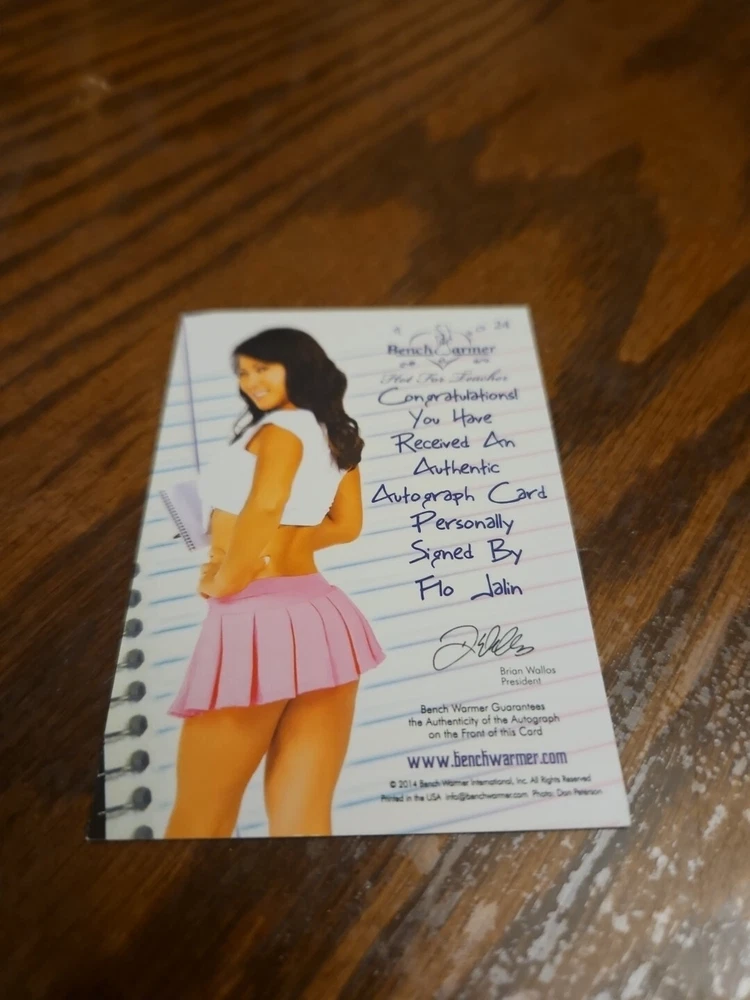 24
Bench Warmer
Hot For Teacher
Congratulations!
You Have
Received An
Authentic
Autograph Card
Personally
Signed By
Flo Jalin
Brian Wallos
President
Bench Warmer Guarantees
the Authenticity of the Autograph
on the Front of this Card
www.benchwarmer.com
© 2014 Bench Warmer International, Inc. All Rights Reserved
Printed in the USA info@benchwarmer.com Photo: Dan Peterson